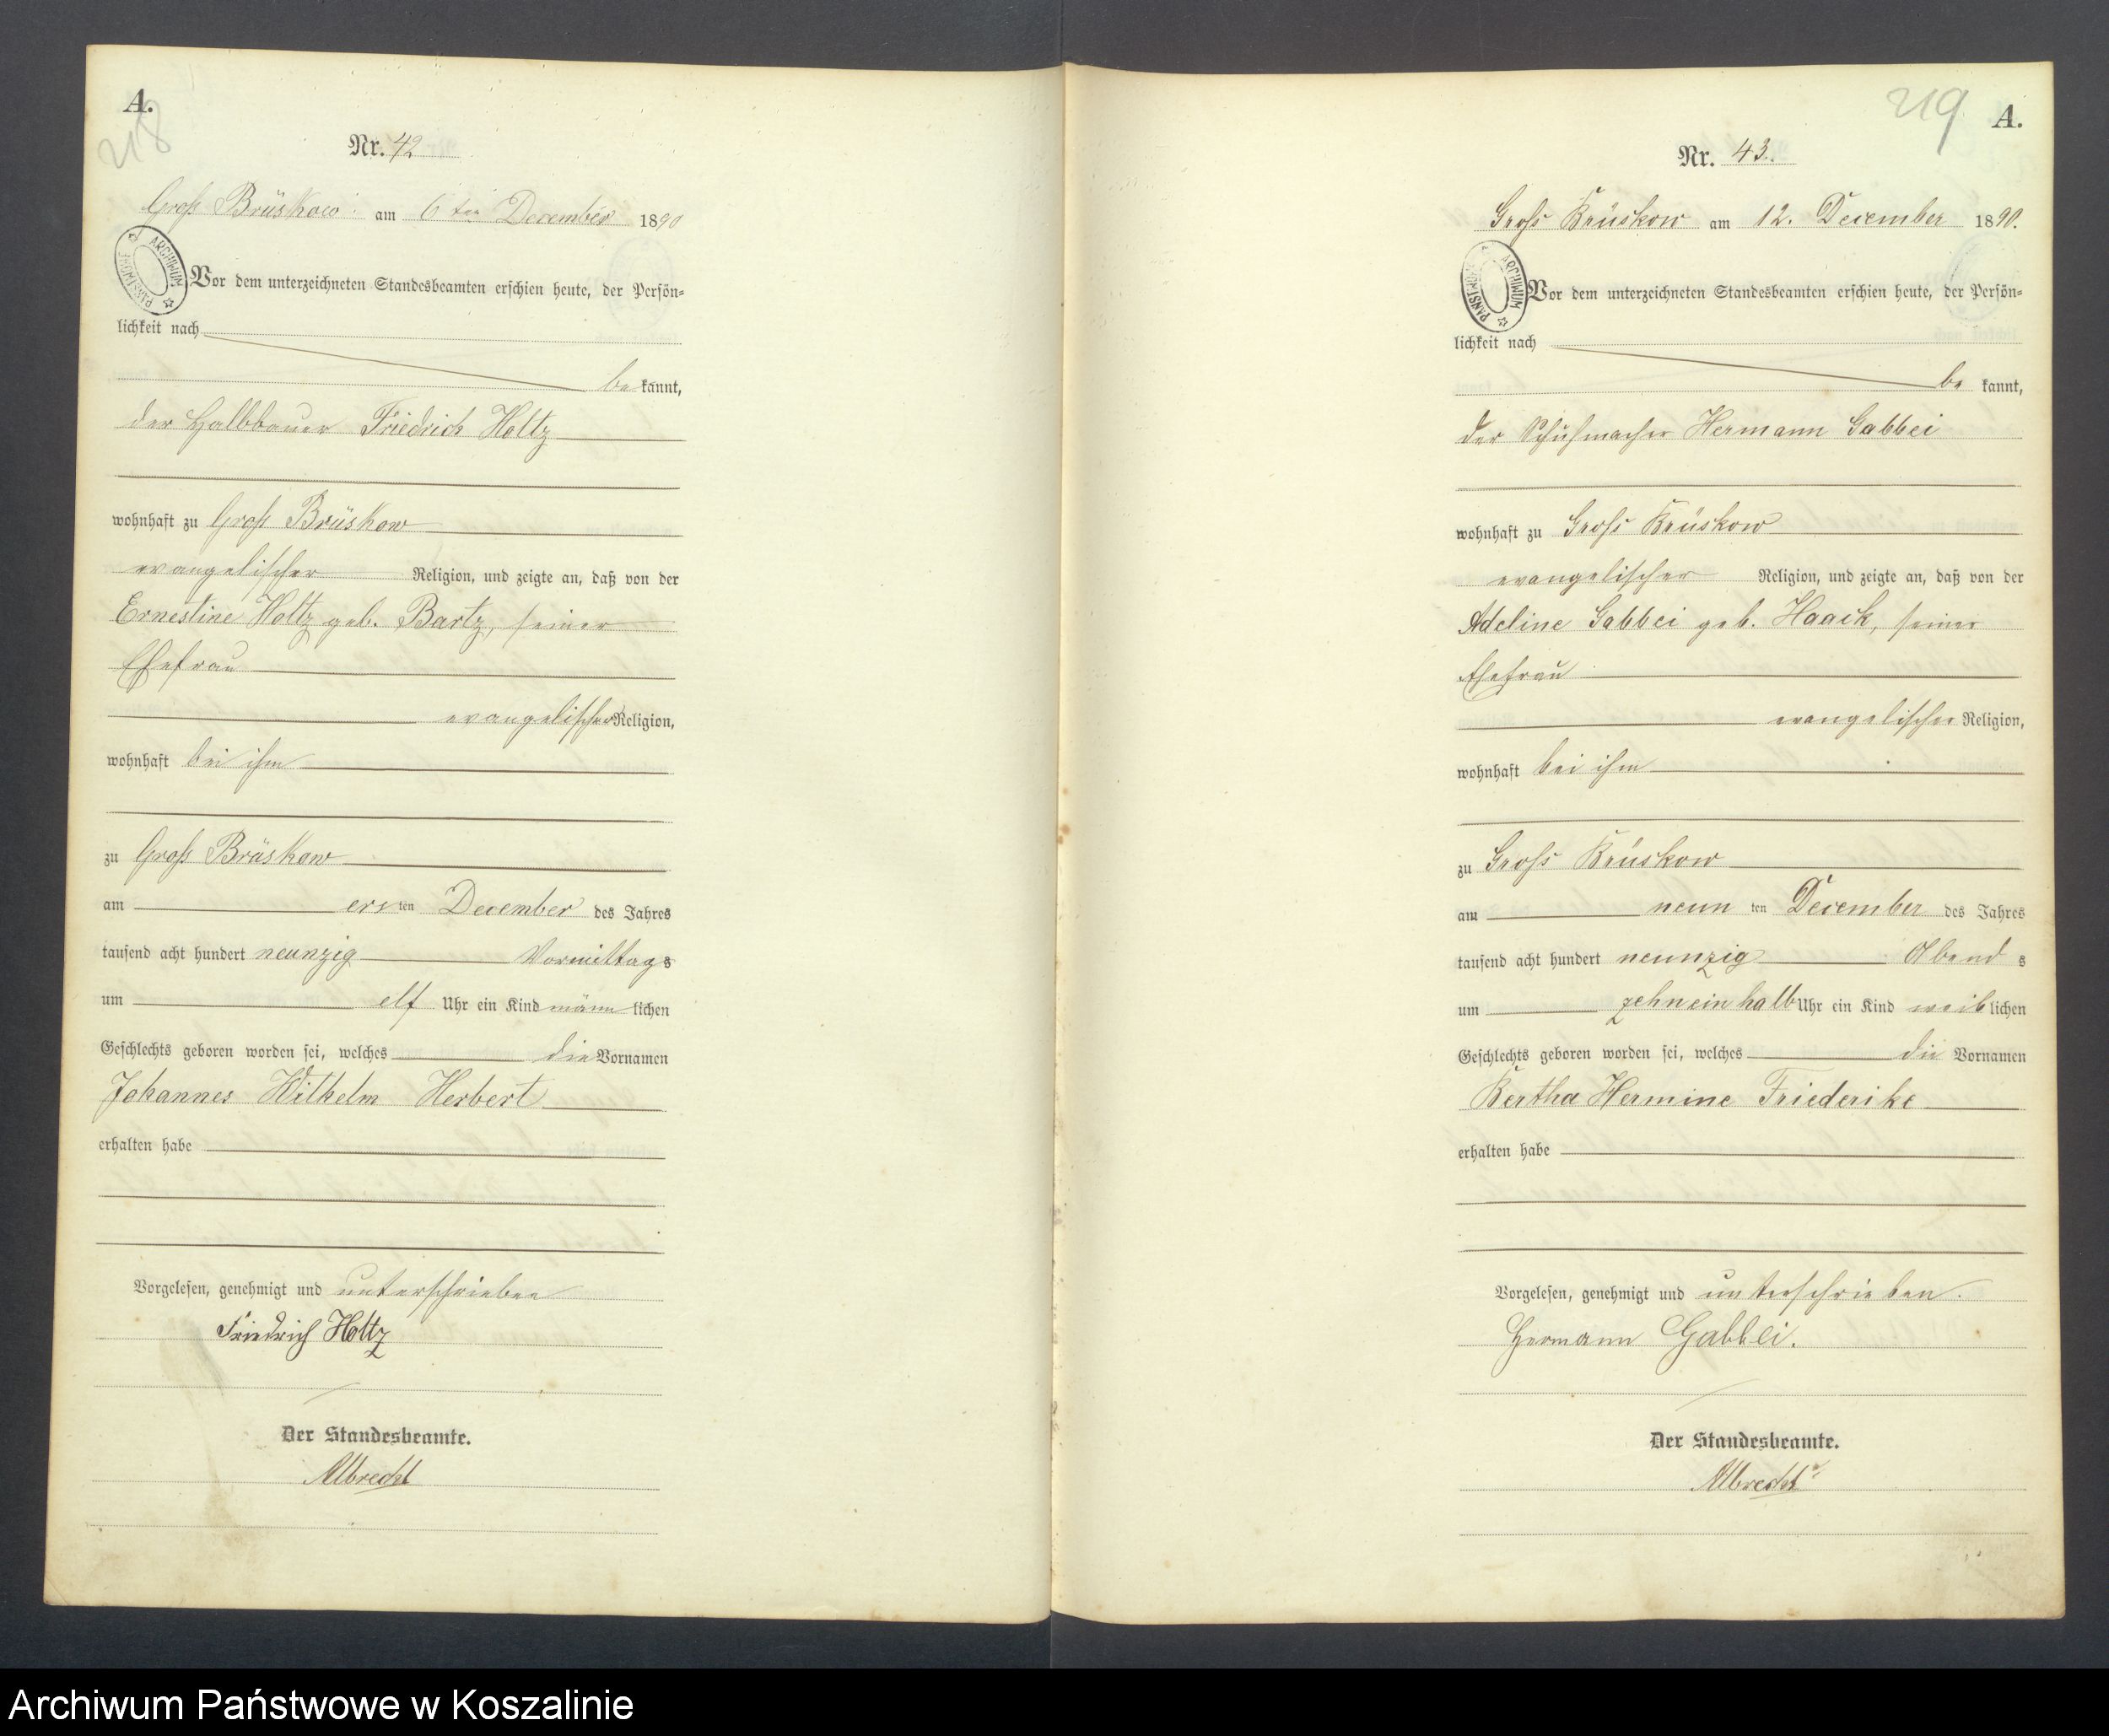 A.
218
Nr. 42
Groß Brüskow am 6ten December 1890
ARCHIWUM PAŃSTWOWE
Vor dem unterzeichneten Standesbeamten erschien heute, der Persön=
lichkeit nach
be kannt,
der Halbbauer Friedrich Holtz
wohnhaft zu Groß Brüskow
evangelischer Religion, und zeigte an, daß von der
Ernestine Holtz geb. Bartz, seiner
Ehefrau
evangelischer Religion,
wohnhaft bei ihm
zu Groß Brüskow
am ersten December des Jahres
tausend acht hundert neunzig Vormittags
um elf Uhr ein Kind männlichen
Geschlechts geboren worden sei, welches die Vornamen
Johannes Wilhelm Herbert
erhalten habe
Vorgelesen, genehmigt und unterschrieben
Friedrich Holtz
Der Standesbeamte.
Albrecht
219
A.
Nr. 43.
Groß Brüskow am 12. December 1890.
ARCHIWUM PAŃSTWOWE
Vor dem unterzeichneten Standesbeamten erschien heute, der Persön=
lichkeit nach
be kannt,
der Schuhmacher Hermann Gabbei
wohnhaft zu Groß Brüskow
evangelischer Religion, und zeigte an, daß von der
Adeline Gabbei geb. Haack, seiner
Ehefrau
evangelischer Religion,
wohnhaft bei ihm
zu Groß Brüskow
am neun ten December des Jahres
tausend acht hundert neunzig Abend s
um zehneinhalb Uhr ein Kind weiblichen
Geschlechts geboren worden sei, welches die Vornamen
Bertha Hermine Friederike
erhalten habe
Vorgelesen, genehmigt und unterschrieben.
Hermann Gabbei.
Der Standesbeamte.
Albrecht
Archiwum Państwowe w Koszalinie